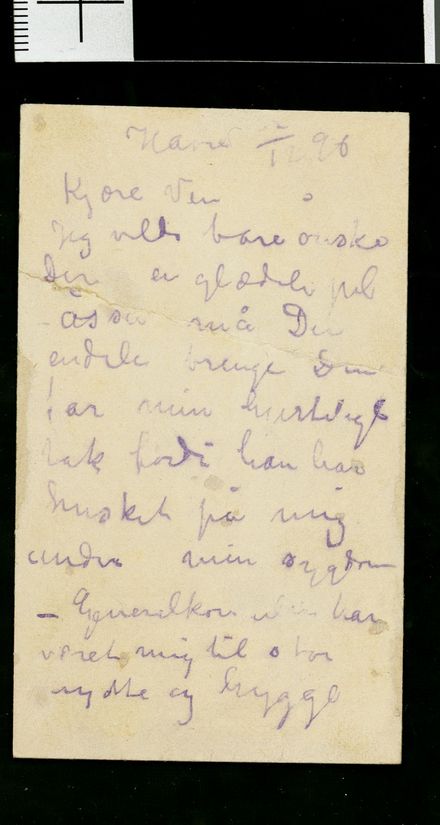 Havre 12 96
Kjære Ven
Jeg vilde bare ønske
Dem en glædeli jul
– Åssen må De
endeli bringe Deres
far min hjerteligste
tak fordi han har
husket på mig
under min sygdom
– Generalkon har
været mig til stor
nytte og hygge